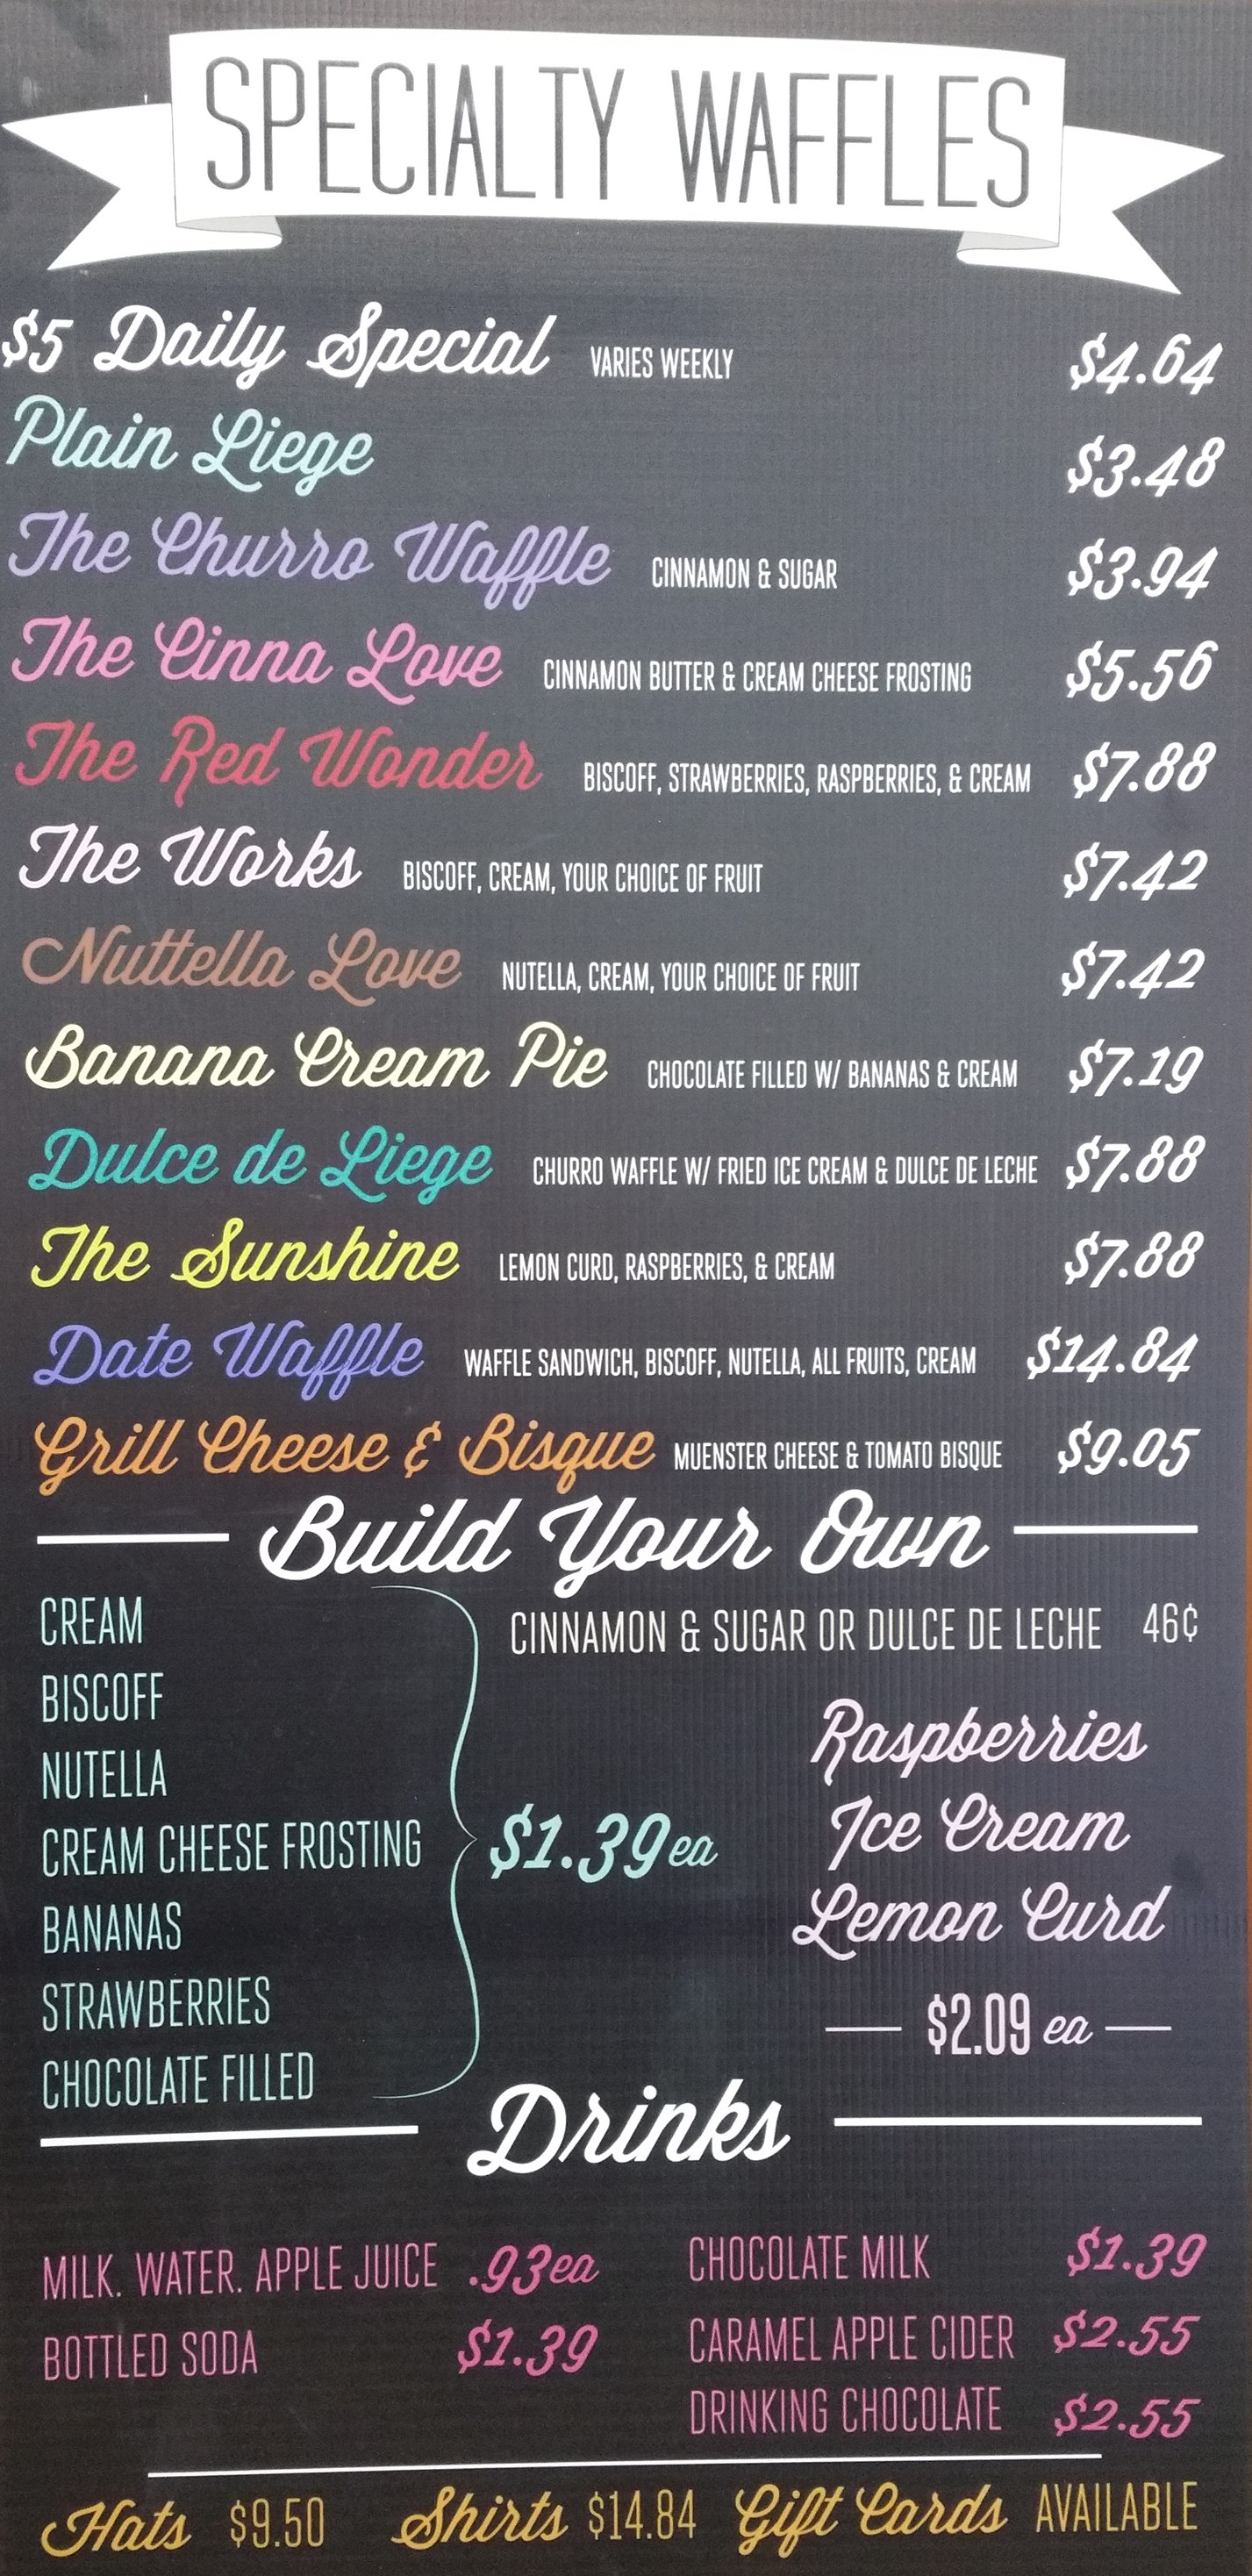 SPECIALTY WAFFLES
$5 Daily Special VARIES WEEKLY $4.64
Plain Liege $3.48
The Churro Waffle CINNAMON & SUGAR $3.94
The Cinna Love CINNAMON BUTTER & CREAM CHEESE FROSTING $5.56
The Red Wonder BISCOFF, STRAWBERRIES, RASPBERRIES, & CREAM $7.88
The Works BISCOFF, CREAM, YOUR CHOICE OF FRUIT $7.42
Nuttella Love NUTELLA, CREAM, YOUR CHOICE OF FRUIT $7.42
Banana Cream Pie CHOCOLATE FILLED W/ BANANAS & CREAM $7.19
Dulce de Liege CHURRO WAFFLE W/ FRIED ICE CREAM & DULCE DE LECHE $7.88
The Sunshine LEMON CURD, RASPBERRIES, & CREAM $7.88
Date Waffle WAFFLE SANDWICH, BISCOFF, NUTELLA, ALL FRUITS, CREAM $14.84
Grill Cheese & Bisque MUENSTER CHEESE & TOMATO BISQUE $9.05
Build Your Own
CREAM
BISCOFF
NUTELLA
CREAM CHEESE FROSTING
BANANAS
STRAWBERRIES
CHOCOLATE FILLED
$1.39 ea
CINNAMON & SUGAR OR DULCE DE LECHE 46¢
Raspberries
Ice Cream
Lemon Curd
$2.09 ea
Drinks
MILK. WATER. APPLE JUICE .93ea
BOTTLED SODA $1.39
CHOCOLATE MILK $1.39
CARAMEL APPLE CIDER $2.55
DRINKING CHOCOLATE $2.55
Hats $9.50 Shirts $14.84 Gift Cards AVAILABLE